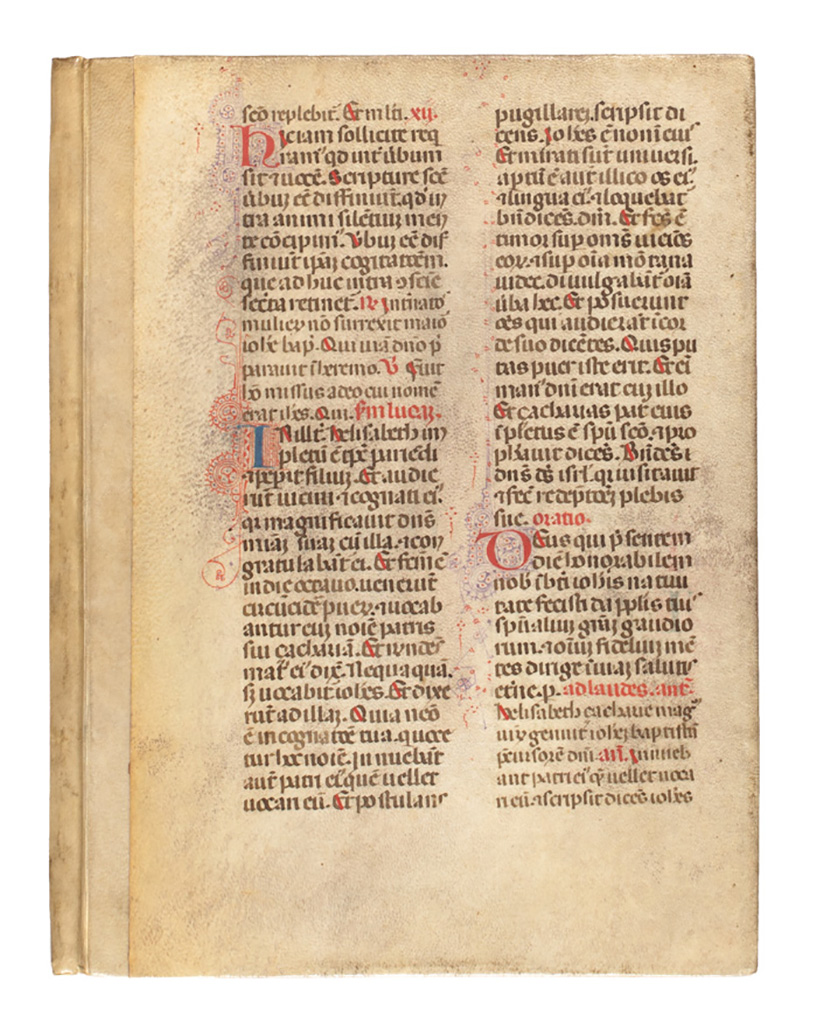 sco replebit. Et in lti. xij.
Hiciam sollicite req
ram' qd int ubum
sit ⁊ uocē. Scripture scē
ubuȝ cē diffiniūt. qd in
tra animi silētiuȝ men
te cōcipim'. Ubuȝ ecē dif
finiūt ipaȝ cogitatōem.
que ad huc intra ꝯsciē
secta retinet. Inter natos
mulieȝ nō surrexit maior
iohe bap. Qui uiā dno p
parauit i heremo. V Fuit
ho missus a deo cui nomē
erat iohes. Qui. sm lucaȝ.
In illt. Helisabeth im
pletū ē tps pariēdi
⁊ pepit filiuȝ. Et audie
rūt uicini ⁊ cognati ei'.
qȝ magnificauit dns
miāȝ suaȝ cū illa. ⁊ con
gratulabāt ei. Et fcm ē
in die octauo. uenerūt
circūcidē pueȝ. ⁊ uocab
antur euȝ noīe patris
sui çachariā. Et rn̄dēs
mat' ei' dix. Nequaquā.
sȝ uocabit iohes. Et dixe
rūt ad illaȝ. Quia nēō
ē in cognatōe tua. q uoce
tur hoc noīe. Innuebāt
aūt patri ei' quē uellet
uocari eū. Et postulans
pugillareȝ. scripsit di
cens. Iohes ē nomē eius
Et mirati sūt uniuersi.
aptū ē aūt illico os ei'
⁊ lingua ei' ⁊ loquebat
bn̄dicēs. dm̄. Et fcs ē
timor sup omēs uicinos
eoȝ. ⁊ sup oīa mōtana
iudee. diuulgabāt oīa
ūba hec. Et posuerunt
oēs qui audierāt i cor
de suo dicētes. Quis pu
tas puer iste erit. Et ei
man' dni erat cuȝ illo
Et çacharias pat eius
ipletus ē spū scō. ⁊ pro
phauit dicēs. Bn̄dcs
dns ds isrl. q uisitauit
⁊ fec redeptōeȝ plebis
sue. oratio.
Deus qui p̄sentem
diē honorabilem
nob i bti iohis natiui
tate fecisti da pplis tuis
spūaliuȝ grāȝ gaudio
rum. ⁊ oīuȝ fideliuȝ mē
tes dirige i uiaȝ salutis
etne. p. ad laudes. ant.
Helisabeth çacharie mag
uiȝ genuit iohēȝ baptistā
pcursorē dni. añ. Innueb
ant patri ei' qȝ uellet uoca
ri eū. ⁊ scripsit dicēs iohes